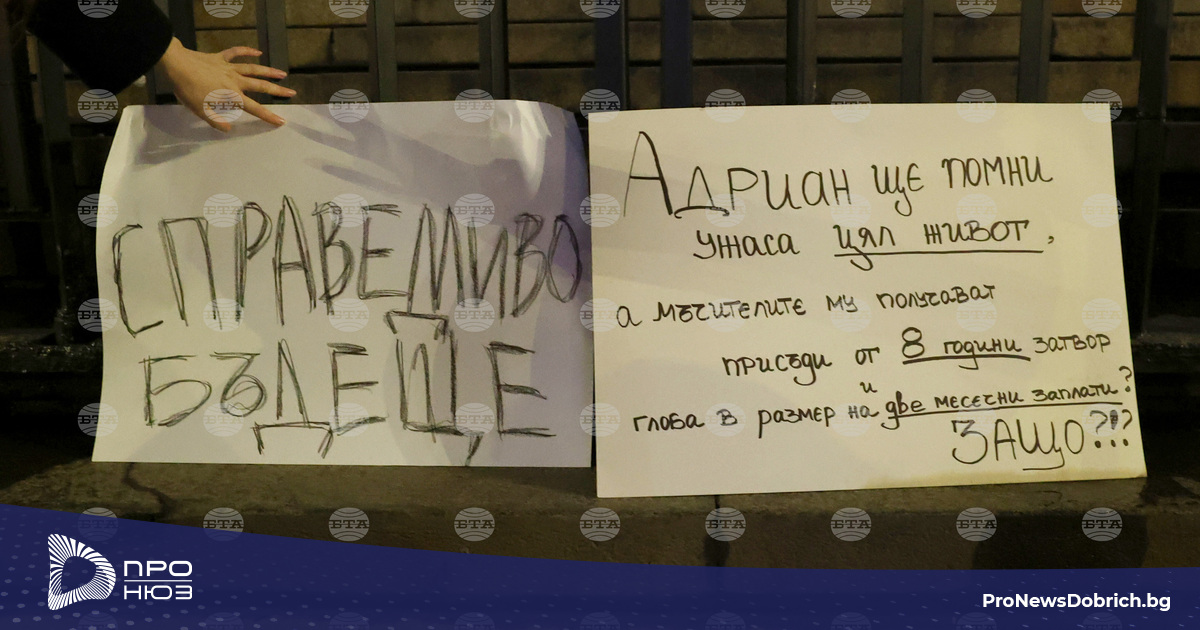 СПРАВЕДЛИВО
БЪДЕЩЕ
АДРИАН ЩЕ ПОМНИ
УЖАСА ЦЯЛ ЖИВОТ,
а мъчителите му получават
присъди от 8 години затвор
и
глоба в размер на две месечни заплати?
ЗАЩО?!?
ПРО
НЮЗ
ProNewsDobrich.bg
БТА